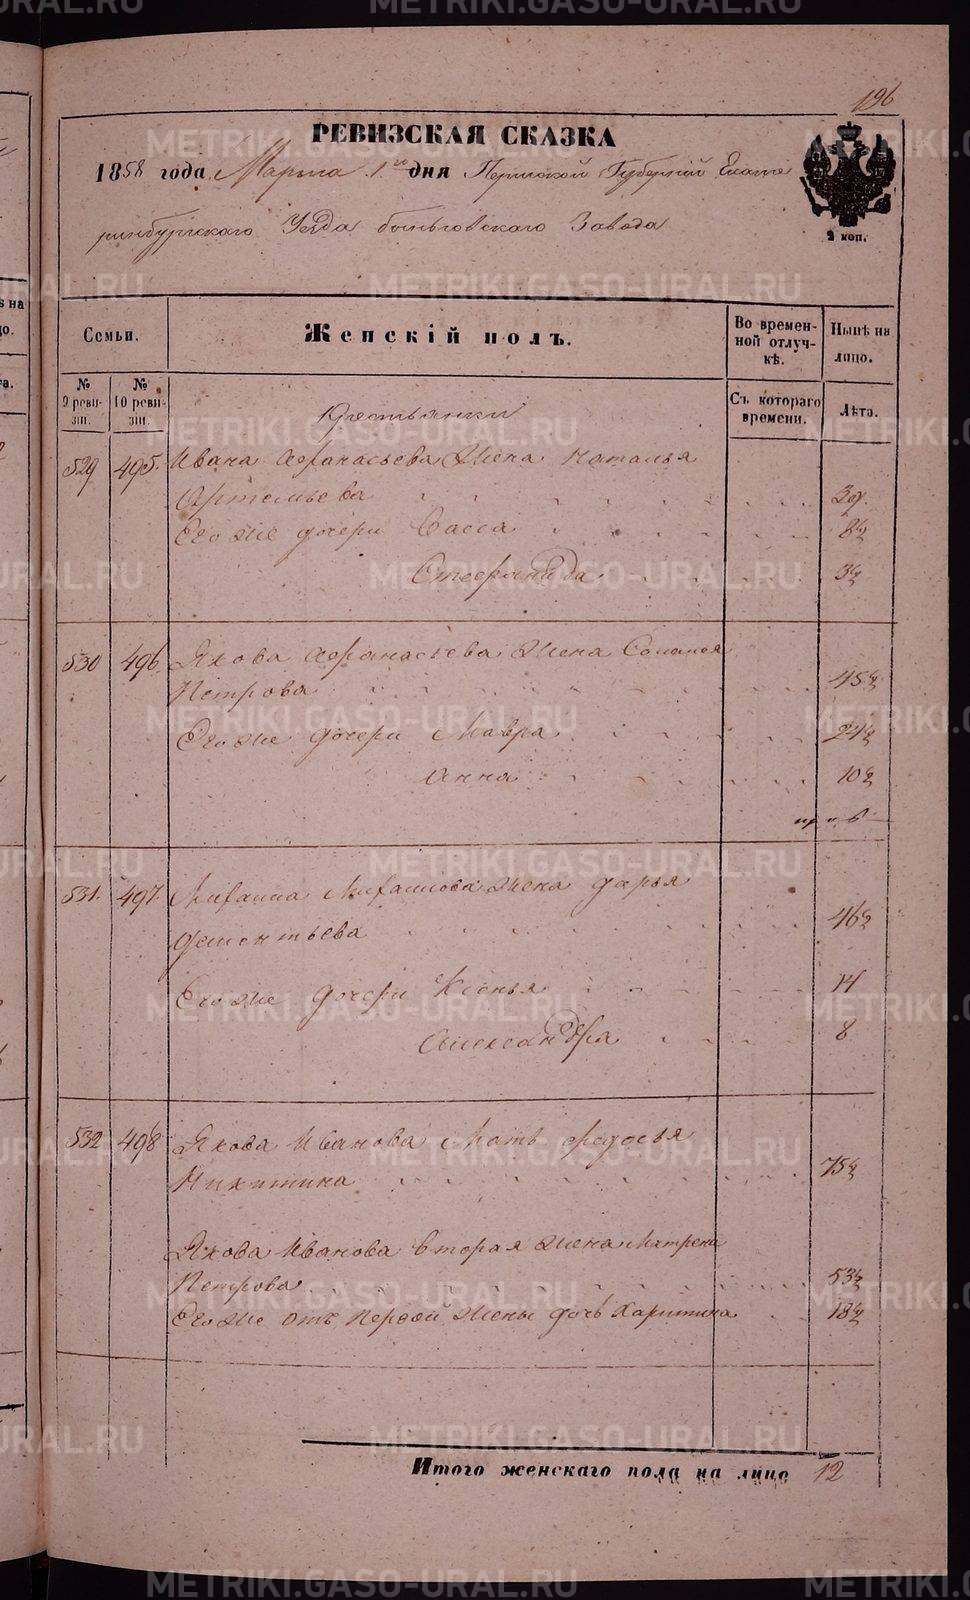 196
РЕВИЗСКАЯ СКАЗКА
1858 года Марта 1го дня Пермской Губернiй Екате
ринбургскаго Уезда Заводa
2 коп.
Семьи.
Женскій полъ.
Во времен-
ной отлуч-
кѣ.
Нынѣ на
лицо.
№
9 реви-
зіи.
№
10 реви-
зіи.
Съ котораго
времени.
Лѣта.
Крестьянки
529 495. Ивана Афанасьева Жена Наталья
Артемьева
Его же дочери Васса
Стефанида
530 496 Якова Афанасьева Жена Соломея
Петрова 45½
Его же дочери Мавра 24½
Анна 10½
531. 497. Жена Дарья
46½
Его же дочери Ксенья 14
Александра 8
532 498 Якова Иванова Мать Федосья
Никитина 75½
Якова Иванова вторая Жена Матрена
Петрова 53½
Его же отъ первой жены дочь Харитина 18½
Итого женскаго пола на лицо 12
METRIKI.GASO-URAL.RU